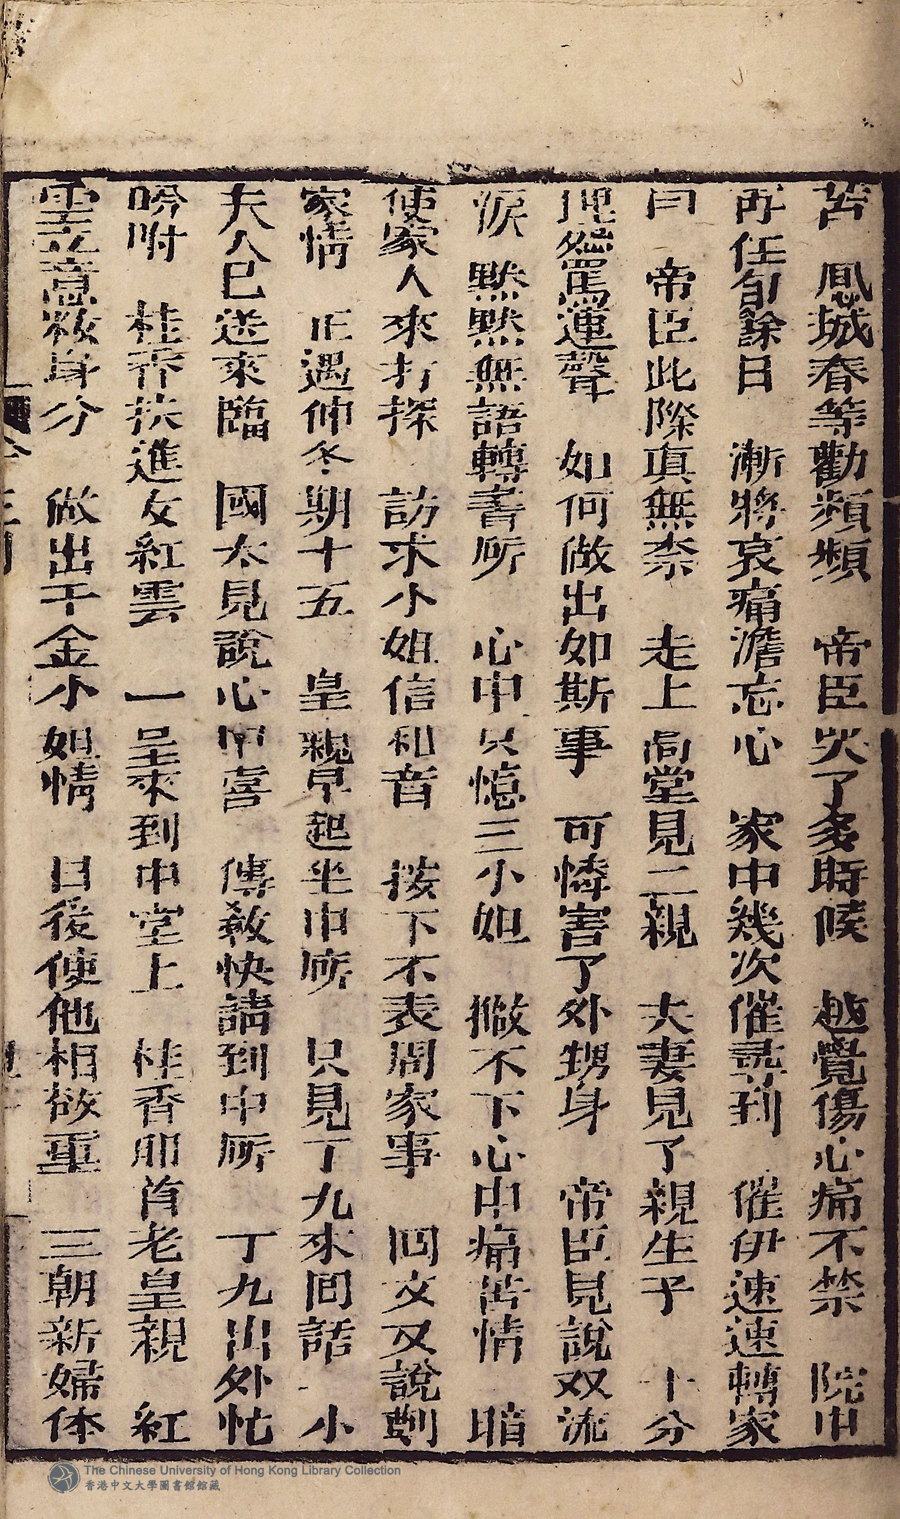 苦　鳳城春等勸頻頻　帝臣哭了多時候　越覺傷心痛不禁　院中
再任旬餘日　漸將哀痛澹忘心　家中幾次催尋到　催伊速速轉家
曰　帝臣此際真無奈　走上高堂見二親　夫妻見了親生子　十分
埋怨罵連聲　如何做出如斯事　可憐害了外甥身　帝臣見說双流
淚　默默無語轉書所　心中只憶三小姐　撇不下心中痛苦情　暗
使家人來打探　訪求小姐信和音　按下不表周家事　四文又說劉
家情　正遇仲冬期十五　皇親早起坐中所　只見丁九來囬話　小
夫人已送來臨　國太見說心中喜　傳教快請到中所　丁九出外忙
吩咐　桂香扶進女紅雲　一呈來到中堂上　桂香叩首老皇親　紅
雲立意粧身分　做出千金小姐情　日後使他相敬重　三朝新婦体
The Chinese University of Hong Kong Library Collection
香港中文大學圖書館館藏